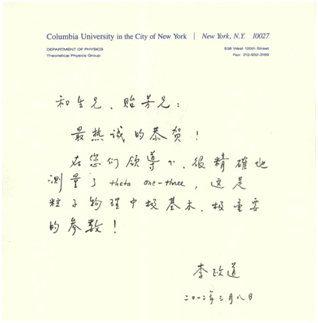 Columbia University in the City of New York | New York, N.Y. 10027
DEPARTMENT OF PHYSICS
Theoretical Physics Group
538 West 120th Street
Fax: 212-932-3169
和生兄、贻芳兄:
最热诚的恭贺!
在您们领导下,很精確地
测量了 theta one-three, 这是
粒子物理中极基本、极重要
的参数!
李政道
二〇一二年三月八日